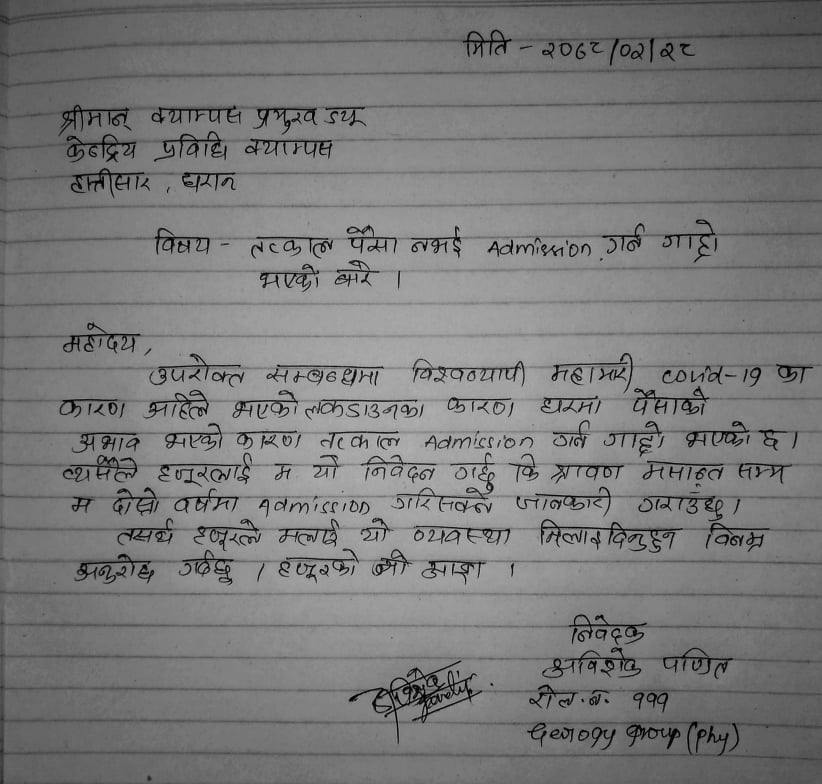 मिति - २०७८/०२/२८
श्रीमान् क्याम्पस प्रमुख ज्यू
केन्द्रिय प्रविधि क्याम्पस
हात्तीसार , धरान
विषय - तत्काल पैसा नभई Admission गर्न गाह्रो
भएको बारे ।
महोदय,
उपरोक्त सम्बन्धमा विश्वव्यापी महामारी covid-19 का
कारण अहिले भएको लकडाउनका कारण घरमा पैसाको
अभाव भएको कारण तत्काल Admission गर्न गाह्रो भएको छ ।
त्यसैले हजुरलाई म यो निवेदन गर्छु कि श्रावण मसान्त सम्म
म दोस्रो वर्षमा Admission गरिसक्ने जानकारी गराउँछु ।
तसर्थ हजुरले मलाई यो व्यवस्था मिलाइदिनुहुन विनम्र
अनुरोध गर्दछु । हजुरको जो आज्ञा ।
निवेदक
अविशेक पण्डित
रोल.न. १११
Geology Group (Phy)